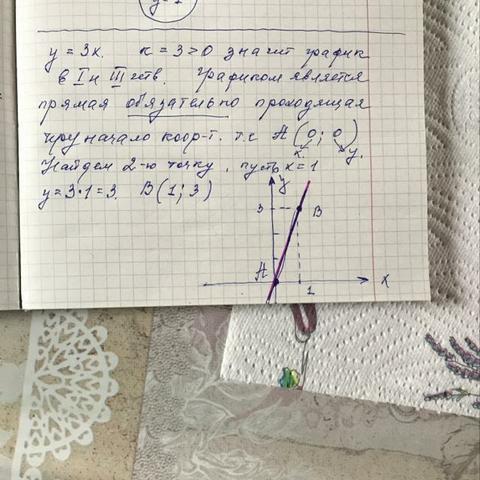 y=1
y = 3x. к = 3 > 0 значит график
в I и III четв. Графиком является
прямая обязательно проходящая
через начало коор-т. т.е A(0; 0)
x. y.
Найдем 2-ю точку, пусть x = 1
y = 3·1 = 3. B(1; 3)
y
3 B
A x
1